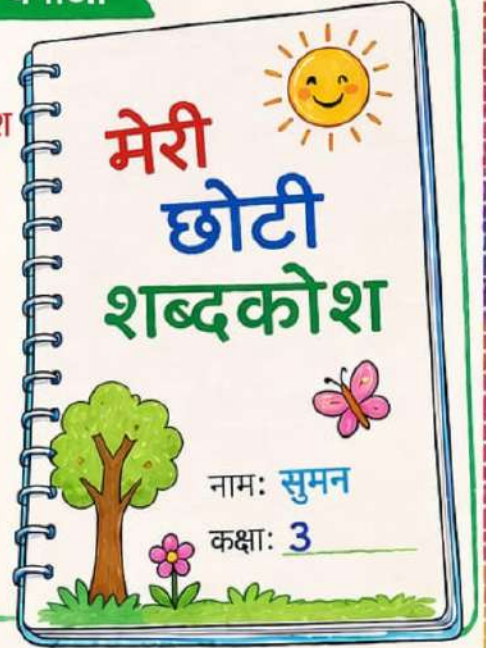 मेरी
छोटी
शब्दकोश
नाम: सुमन
कक्षा: 3